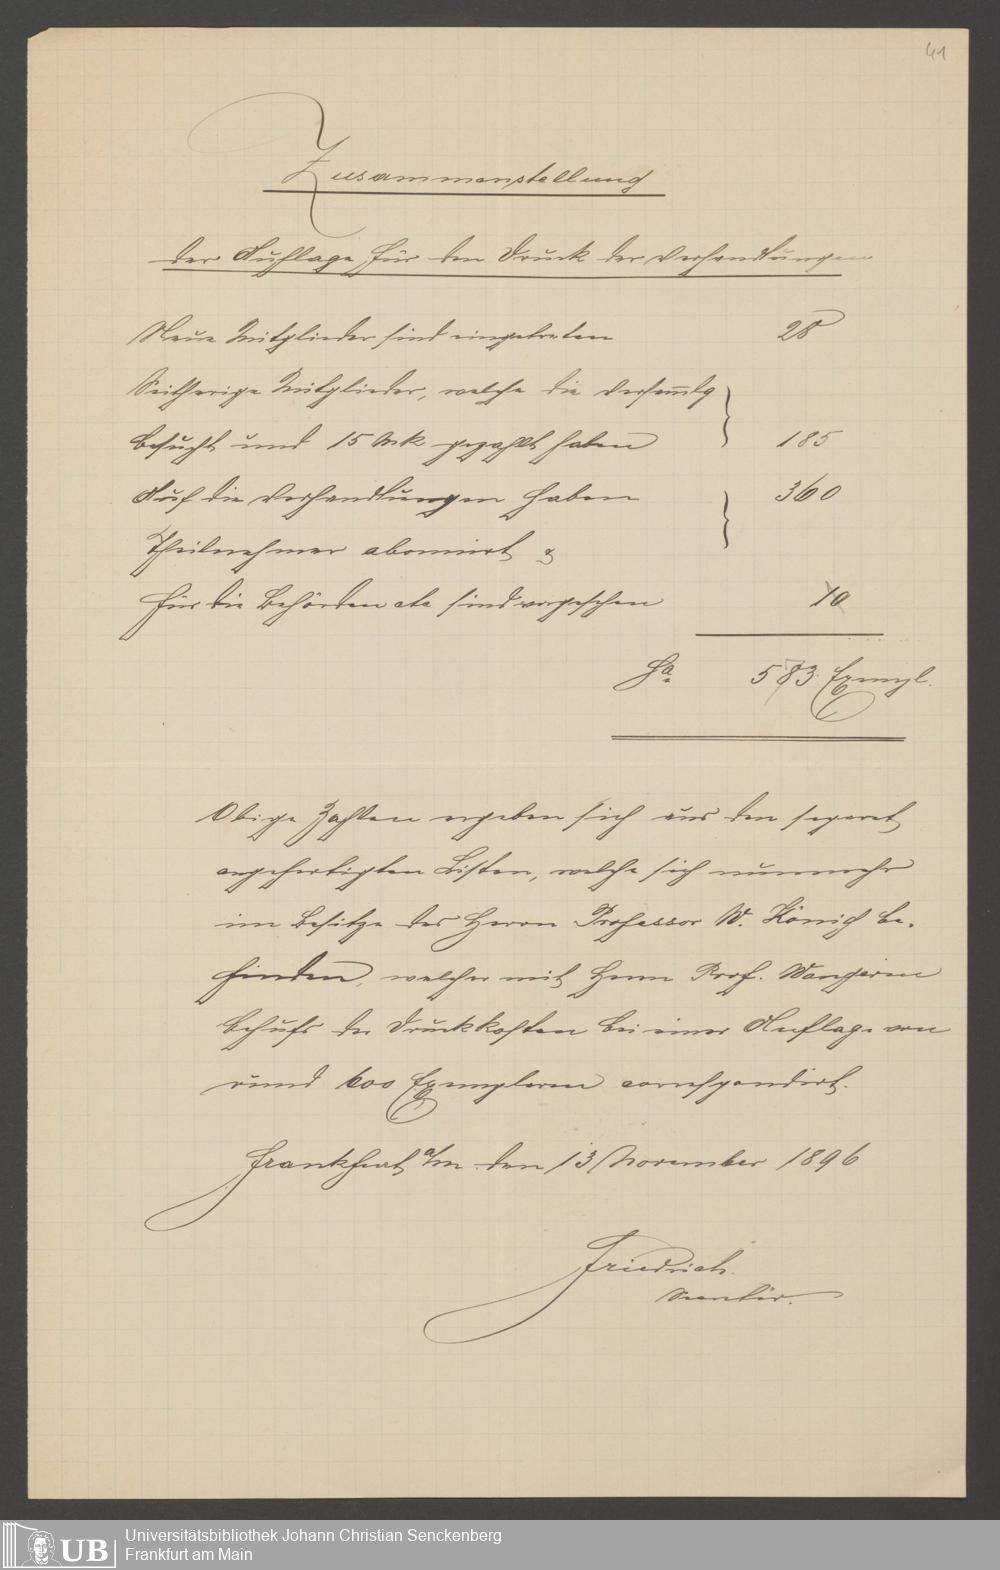 41
Zusammenstellung
der Auflage für den Druck der Verhandlungen
Neue Mitglieder sind eingetreten 28
Seitherige Mitglieder, welche die Versammlg
besucht und 15 Mk gezahlt haben } 185
Auf die Verhandlungen haben } 360
Theilnehmer abonnirt &
für die Behörden etc sind vorgesehen 10
Sa. 583 Exempl.
Obige Zahlen ergeben sich aus den separat
angefertigten Listen, welche sich nunmehr
im Besitze des Herrn Professor W. König be-
finden, welcher mit Herrn Prof. Wangerin
behufs der Druckkosten bei einer Auflage von
rund 600 Exemplaren correspondirt.
Frankfurt a/m den 13 November 1896
Friedrich.
Secretär.
UB
Universitätsbibliothek Johann Christian Senckenberg
Frankfurt am Main